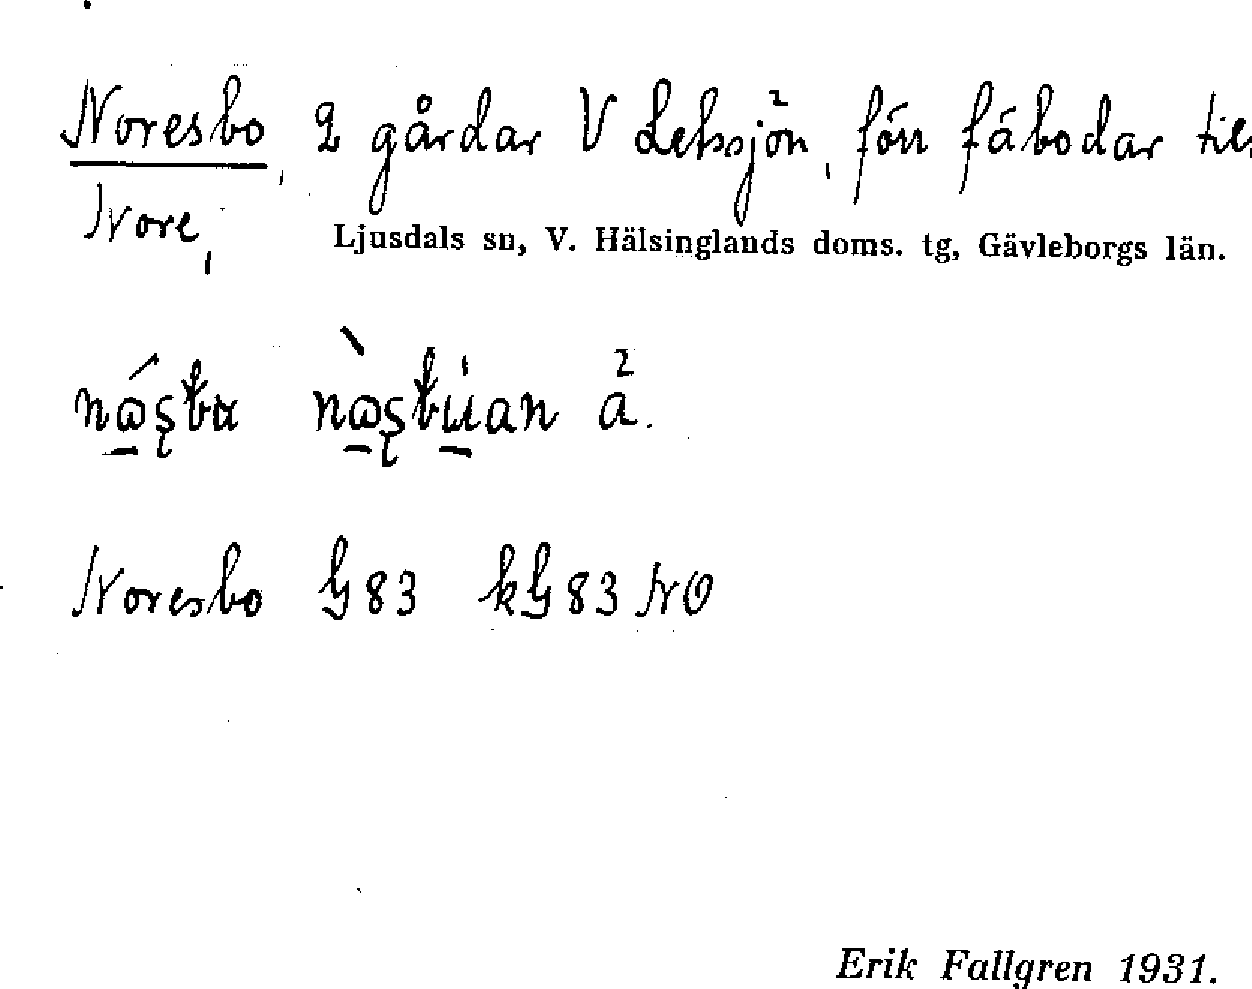 Noresbo, 2 gårdar V Leksjön, förr fäbodar till
Nore,
Ljusdals sn, V. Hälsinglands doms. tg, Gävleborgs län.
Noresbo G83 kG83 NO
Erik Fallgren 1931.